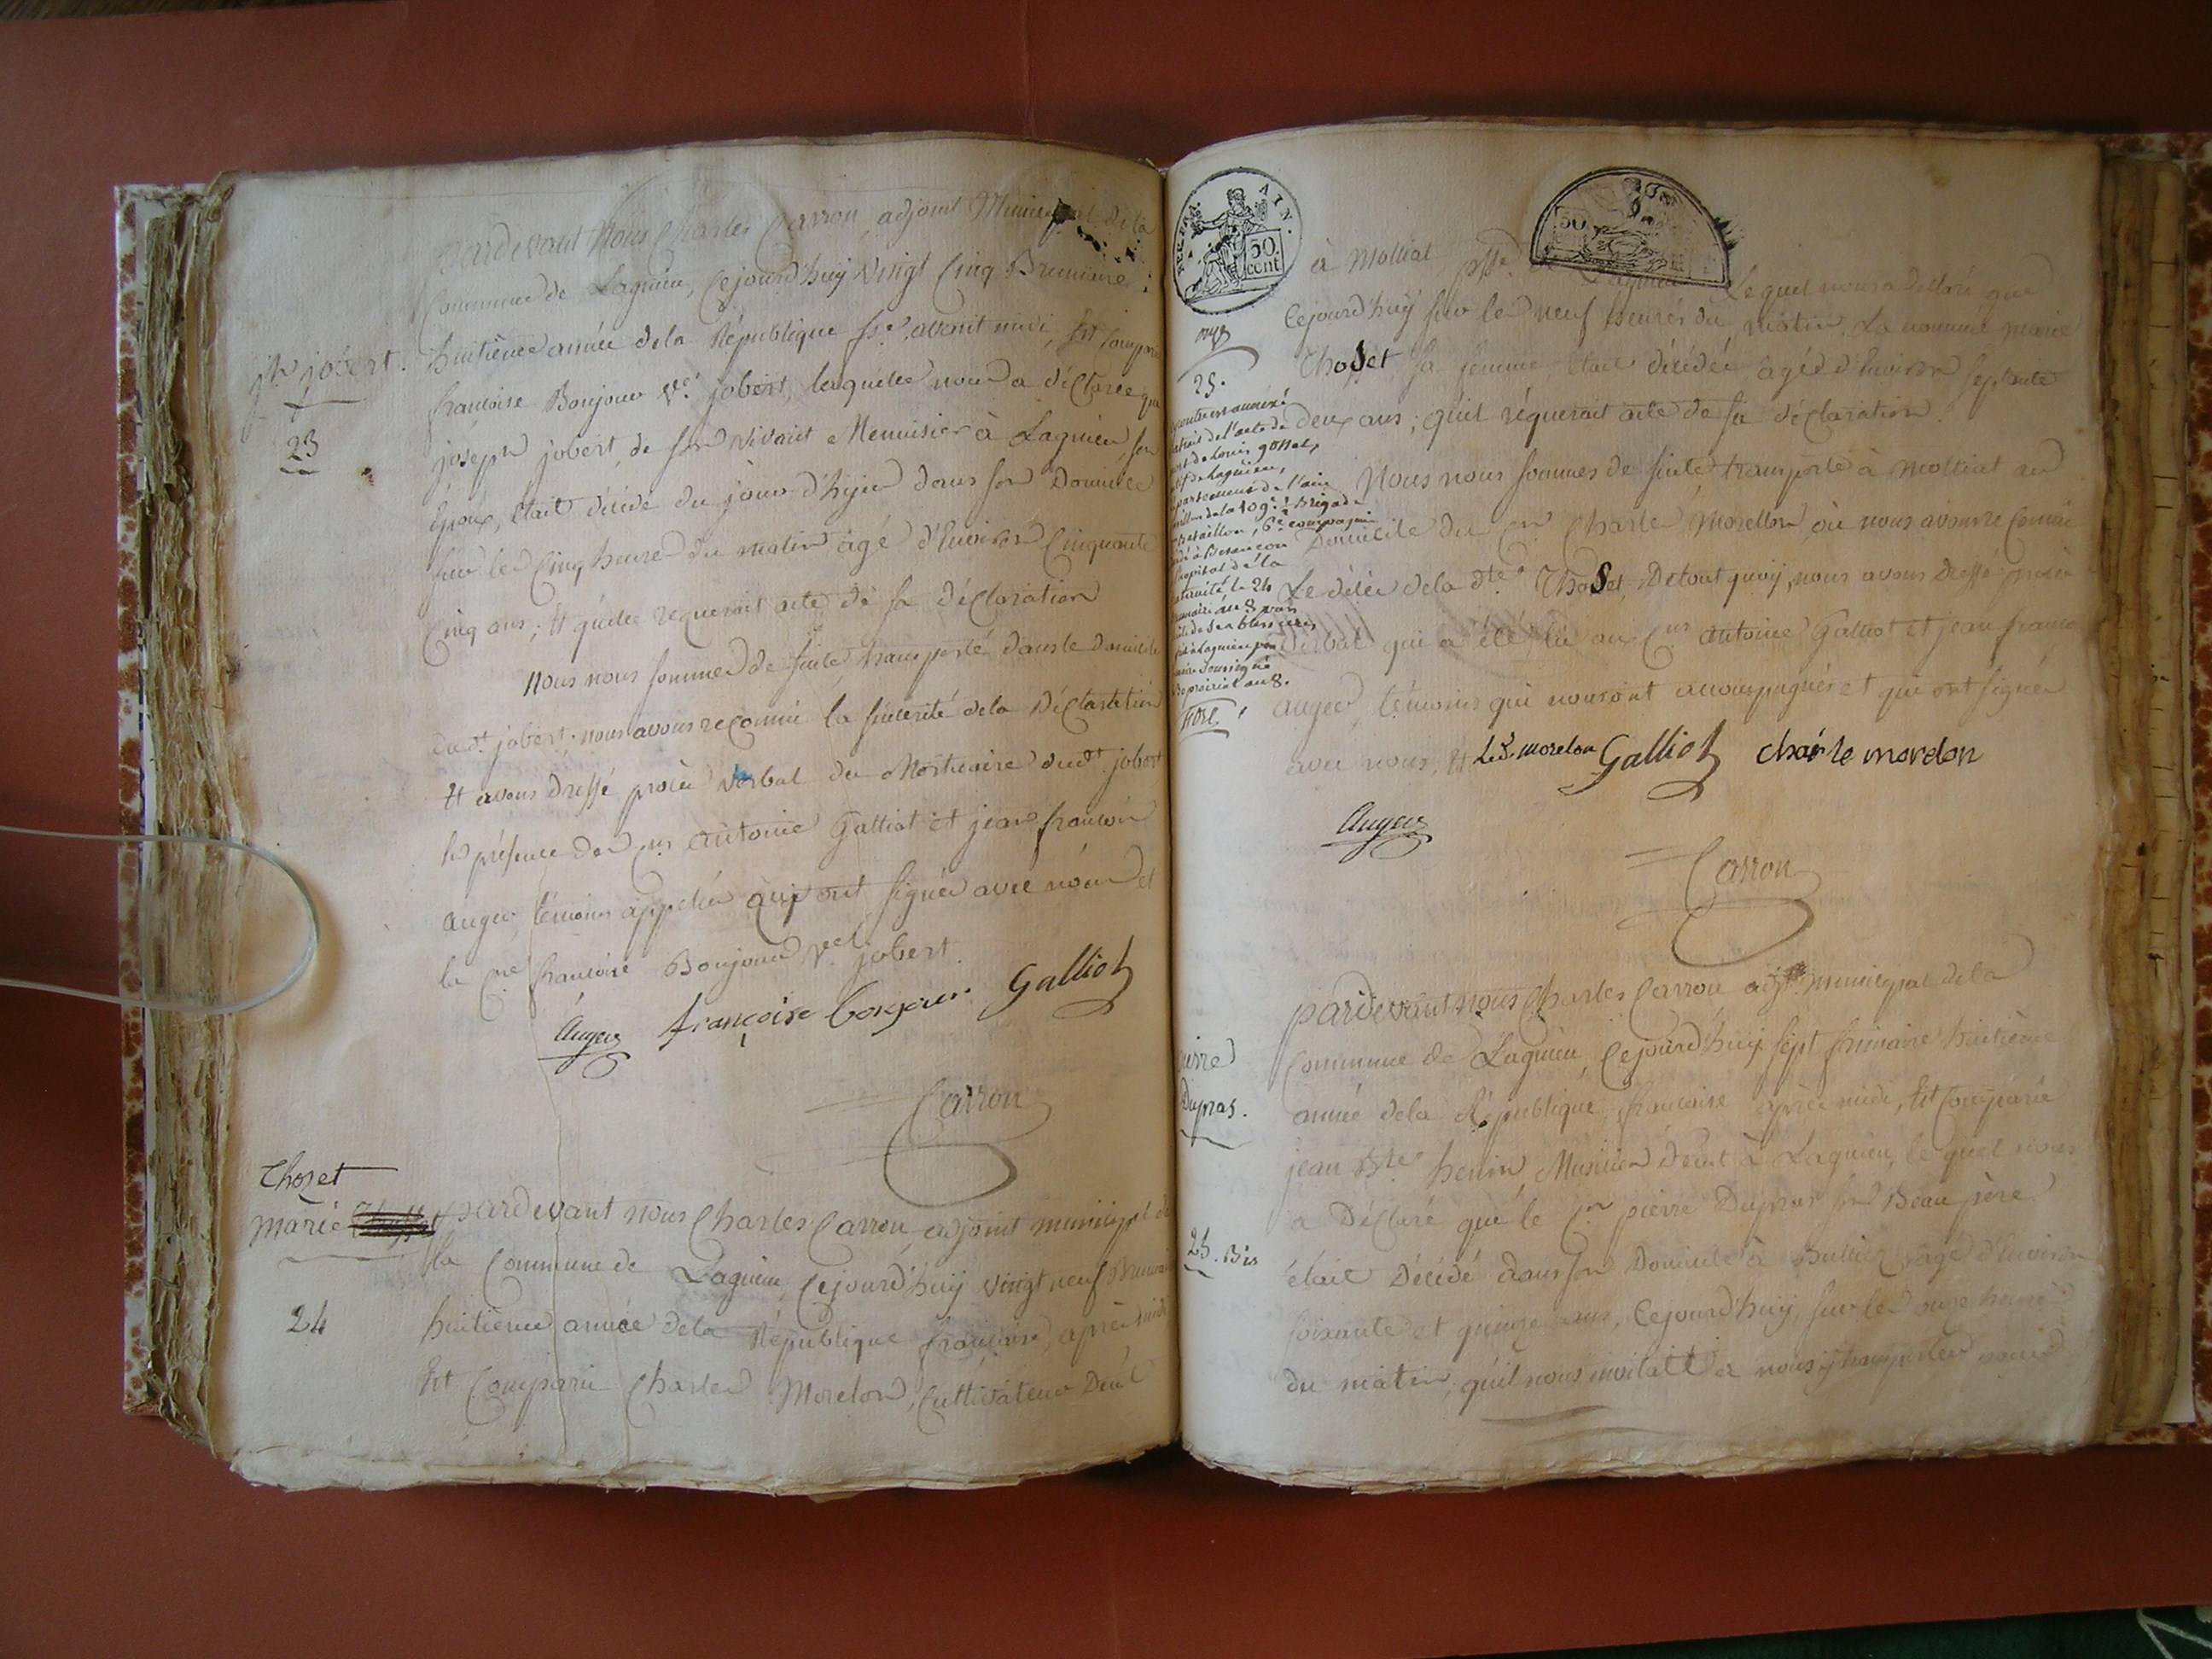 pardevant Nous Charles Carron adjoint Municipal de la
Commune de Lagnieu, Cejourd'huÿ vingt Cinq Brumaire
jh jobert. huitième année dela République fse. avant midi, Est Comparue
francoise Bonjour ve. jobert, laquelle nous a déclarée que
23
joseph jobert, de son vivant Menuisier à Lagnieu, son
Epoux, était décédé du jour d'hyer dans son Domicile
sur les Cinq heures du matin agé d'Environ Cinquante
Cinq ans; Et quelle requerait acte de sa déclaration
Nous nous sommes de suite transporté dans le domicile
dudt. jobert, nous avons reconnu la sincerité dela Déclaration
Et avons Dressé procès verbal du Mortuaire dudt. jobert
En présence des Cns antoine Galliot et jean francois
auger témoins appellés qui ont signés avec nous et
la Cne francoise Bonjour Ve. jobert.
Auger françoise bonjour Galliot
Carron
Thozet
marie
pardevant nous Charles Carron adjoint municipal de
la Commune de Lagnieu, Cejourd'huÿ vingt neuf Brumaire
24
huitième année dela République francaise, après midi
Est Comparu Charles Morelon, Cultivateur Demt
AIN.
50 cent
50
à Molliat psse. de Lagnieu Lequel nous a déclaré que
Cejourd'huÿ sur les neuf heures du matin, La nommée marie
Thoset, sa femme était décédée agée d'Environ septante
deux ans; qu'il réquerait acte de sa déclaration.
25.
extrait de l'acte de
de Louis gonet,
de Lagnieu,
département de l'ain
de la 109e. 1/2 Brigade
Bataillon, 6e compagnie
à Besancon
hopital de la
le 24
an 8
de ses blessures
à Lagnieu
soussigné
prairial an 8.
Nous nous sommes de suite transporté à molliat au
Domicile du Cn Charle Morellon, où nous avons reconnu
Le décès dela dte. Thoset, Detout quoÿ, nous avons Dressé procès
verbal qui a été lu au Cns antoine Galliot et jean francois
auger, témoins qui nous ont accompagnés et qui ont signés
avec nous, Et Ls. morelon Galliot charle morelon
Auger
Carron
pierre
Dupras.
25. Bis
pardevant nous Charles Carron adjt. municipal dela
Commune de Lagnieu, Cejourd'huÿ sept frimaire huitième
année dela République francaise après midi, Est Comparu
jean Bte. henin Musicien demt à Lagnieu, lequel nous
a Déclaré que le Cn pierre Dupras son Beau père
était Décédé dans son Domicile à agé d'Environ
soixante et quinze ans, Cejourd'huÿ, sur les onze heures
du matin, qu'il nous invitait à nous y transporter pour